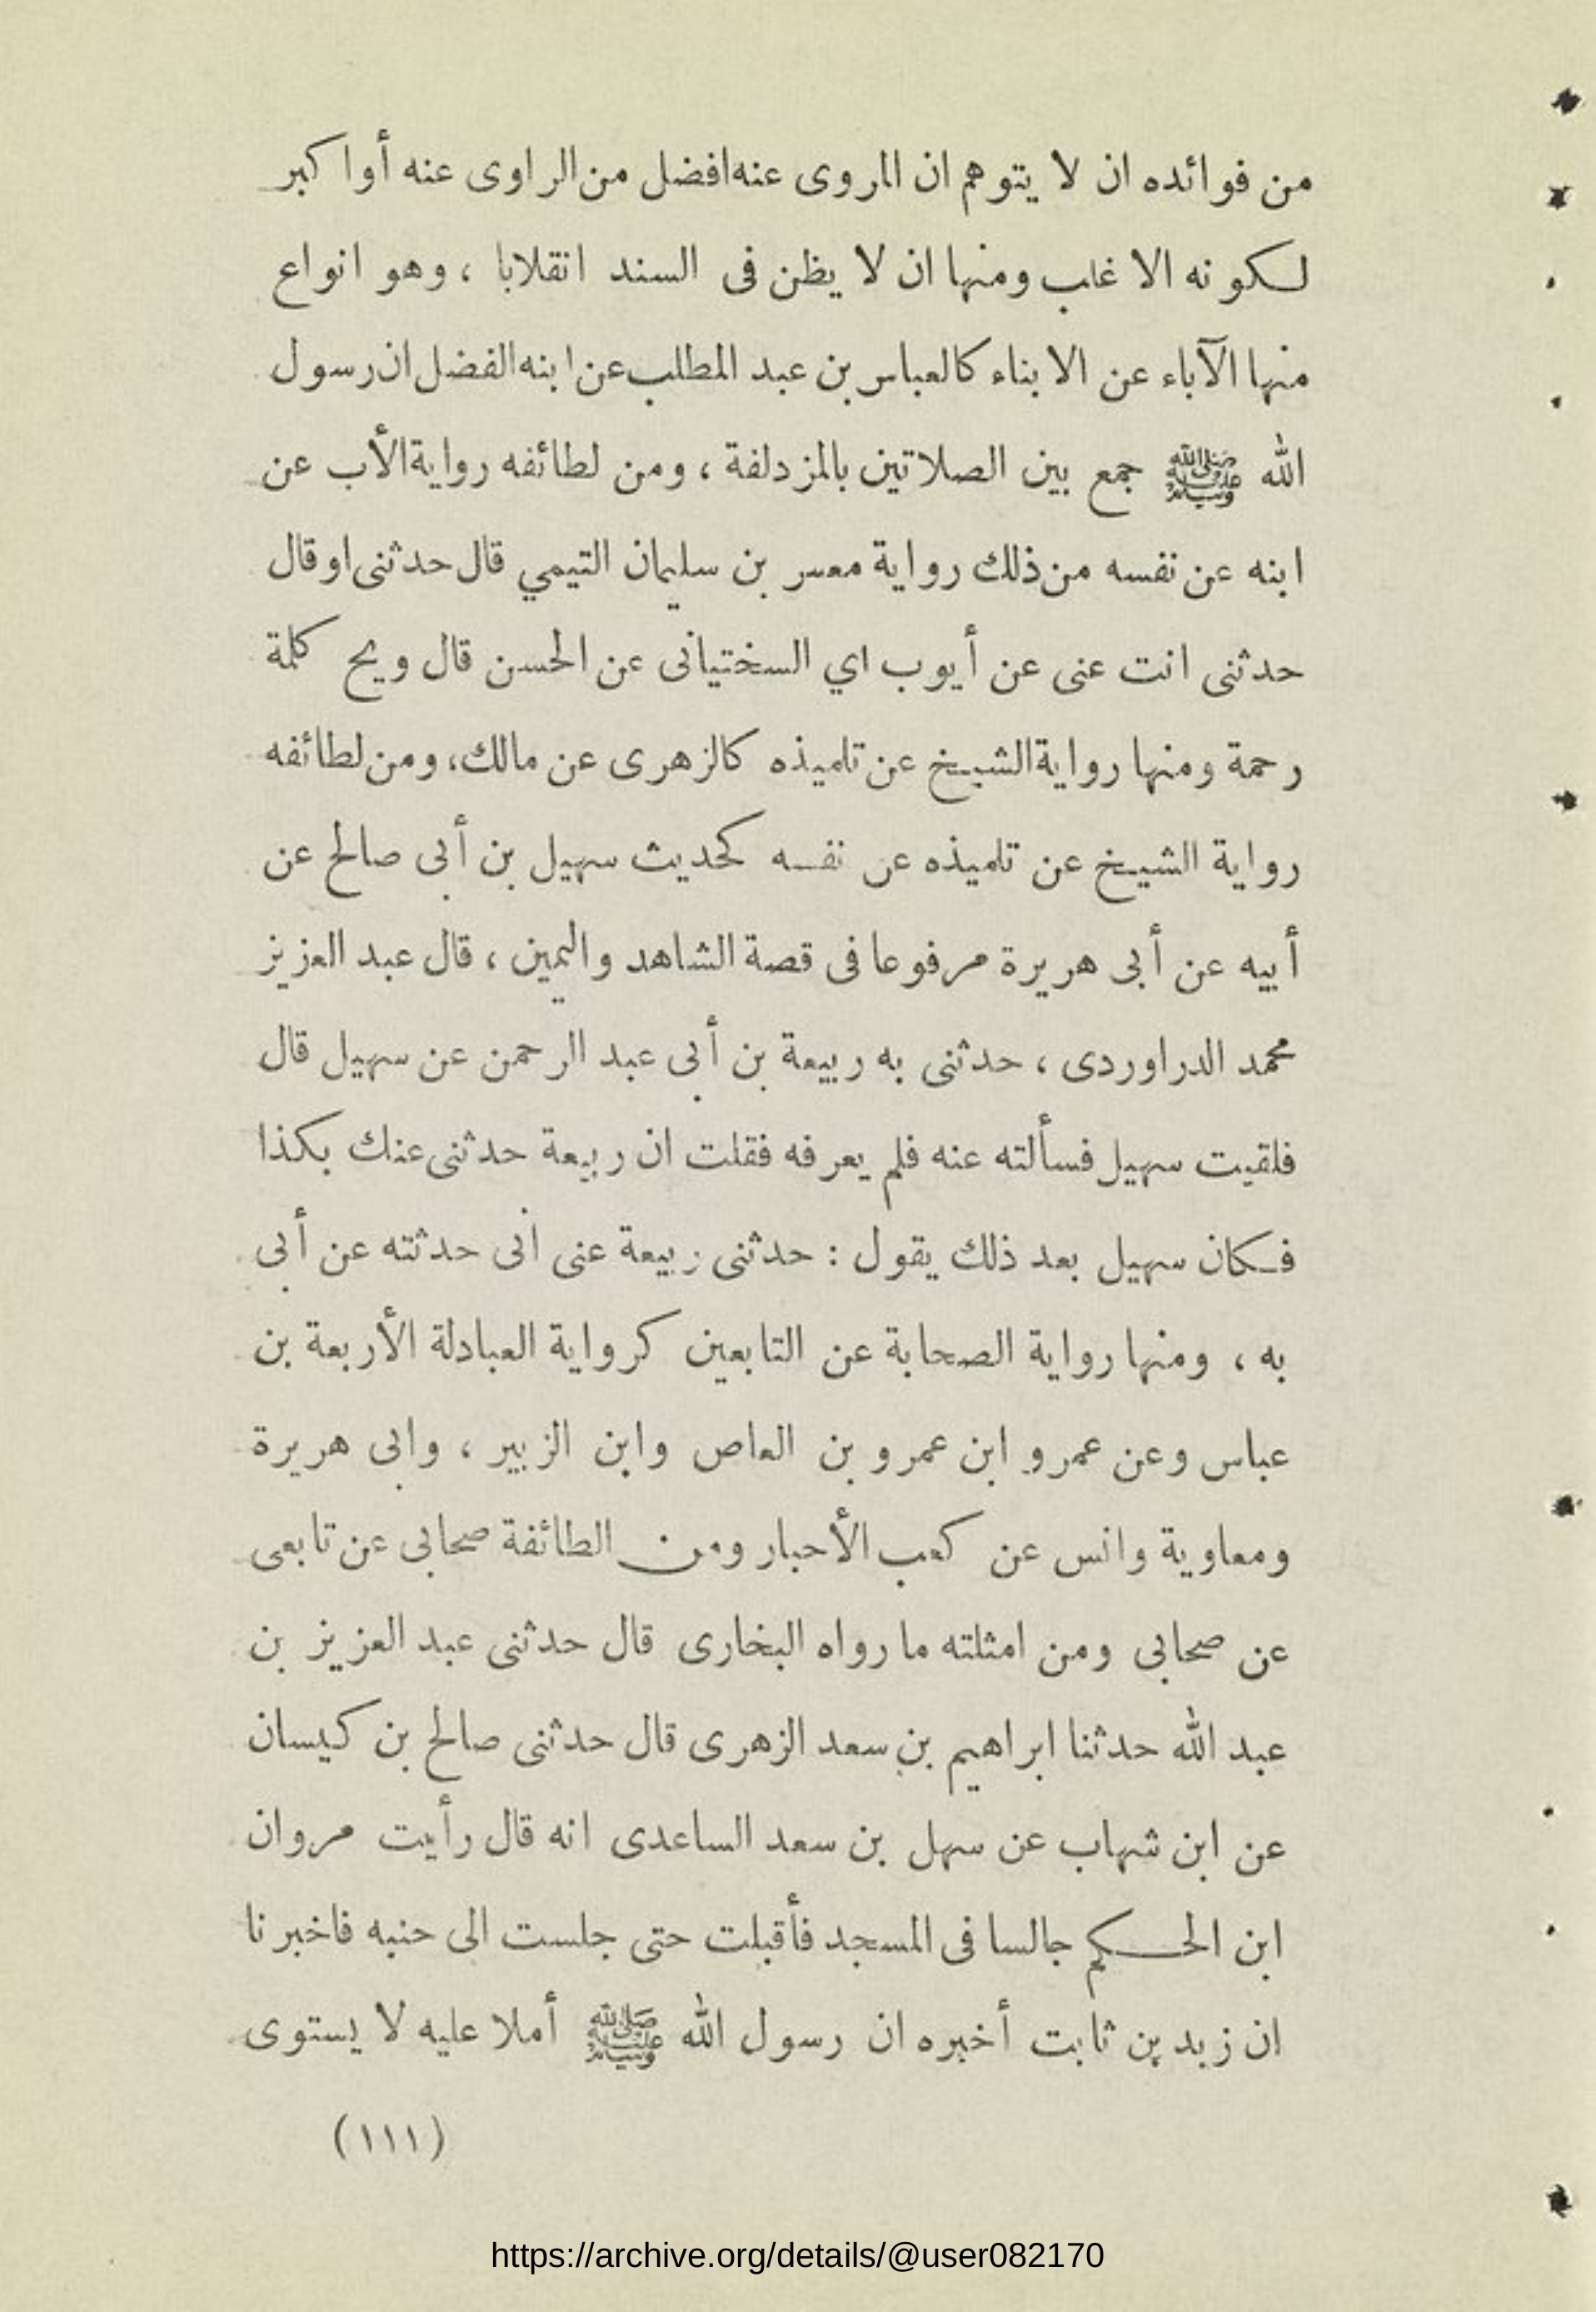 من فوائده ان لا يتوهم ان المروى عنه افضل من الراوى عنه أوا كبر
لكونه الاغلب ومنها ان لا يظن فى السند انقلابا ، وهو انواع
منها الآباء عن الابناء كالعباس بن عبد المطلب عن ابنه الفضل ان رسول
الله ﷺ جمع بين الصلاتين بالمزدلفة ، ومن لطائفه رواية الأب عن
ابنه عن نفسه من ذلك رواية معمر بن سليمان التيمي قال حدثنى او قال
حدثنى انت عنى عن أيوب اي السختيانى عن الحسن قال ويح كلمة
رحمة ومنها رواية الشيخ عن تلميذه كالزهرى عن مالك، ومن لطائفه
رواية الشيخ عن تلميذه عن نفسه كحديث سهيل بن أبى صالح عن
أبيه عن أبى هريرة مرفوعا فى قصة الشاهد واليمين ، قال عبد العزيز
محمد الدراوردى ، حدثنى به ربيعة بن أبى عبد الرحمن عن سهيل قال
فلقيت سهيل فسألته عنه فلم يعرفه فقلت ان ربيعة حدثنى عنك بكذا
فكان سهيل بعد ذلك يقول : حدثنى ربيعة عنى انى حدثته عن أبى
به ، ومنها رواية الصحابة عن التابعين كرواية العبادلة الأربعة بن
عباس وعن عمرو ابن عمرو بن العاص وابن الزبير ، وابى هريرة
ومعاوية وانس عن كعب الأحبار ومن الطائفة صحابى عن تابعى
عن صحابى ومن امثلته ما رواه البخارى قال حدثنى عبد العزيز بن
عبد الله حدثنا ابراهيم بن سعد الزهرى قال حدثنى صالح بن كيسان
عن ابن شهاب عن سهل بن سعد الساعدى انه قال رأيت مروان
ابن الحكم جالسا فى المسجد فأقبلت حتى جلست الى حنبه فاخبرنا
ان زيد بن ثابت أخبره ان رسول الله ﷺ أملا عليه لا يستوى
(١١١)
https://archive.org/details/@user082170